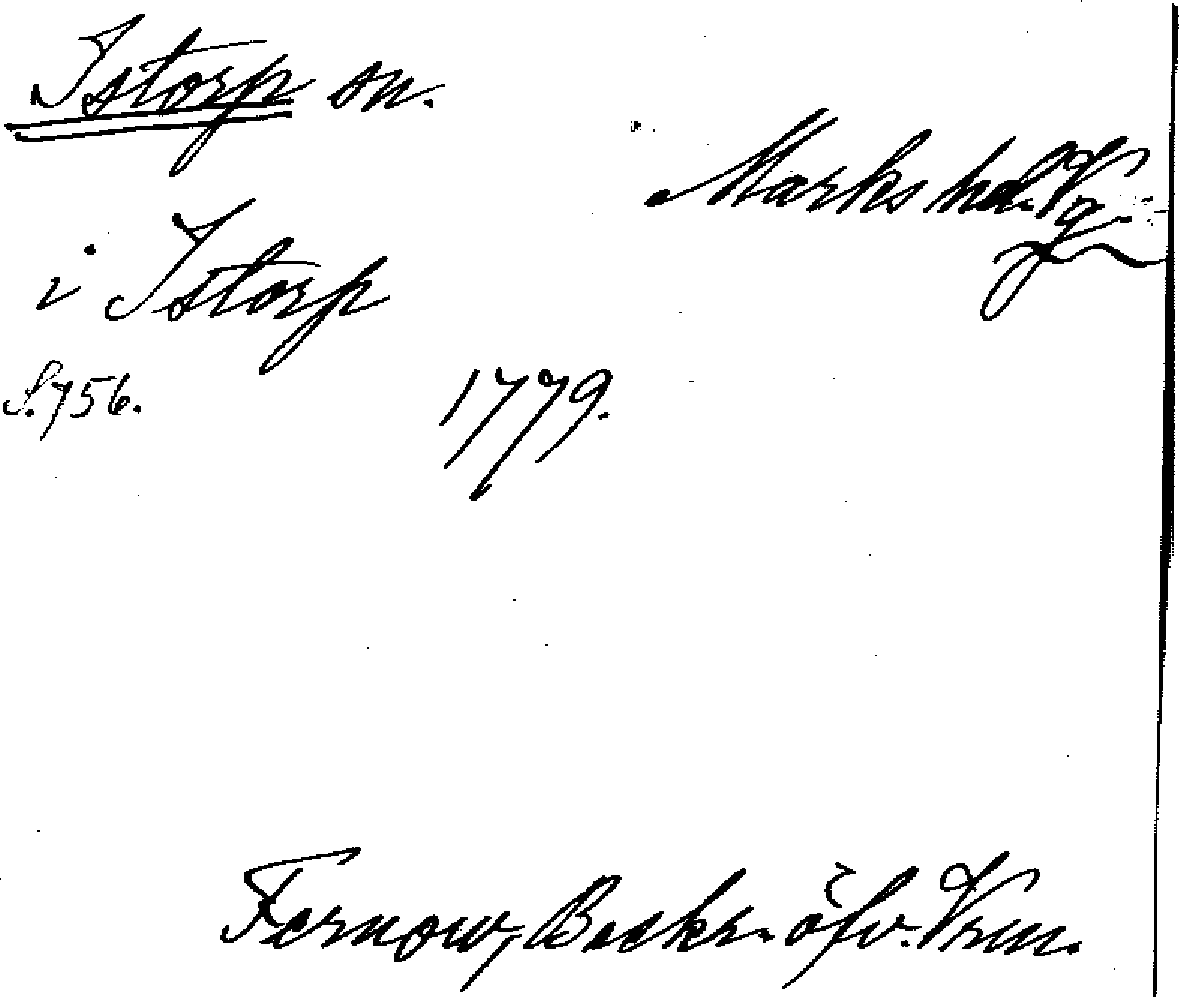 Istorp sn.
Marks hd. Vg.
i Istorp
S. 756.
1779.
Fernow, Beskr. öfv. Vrm.